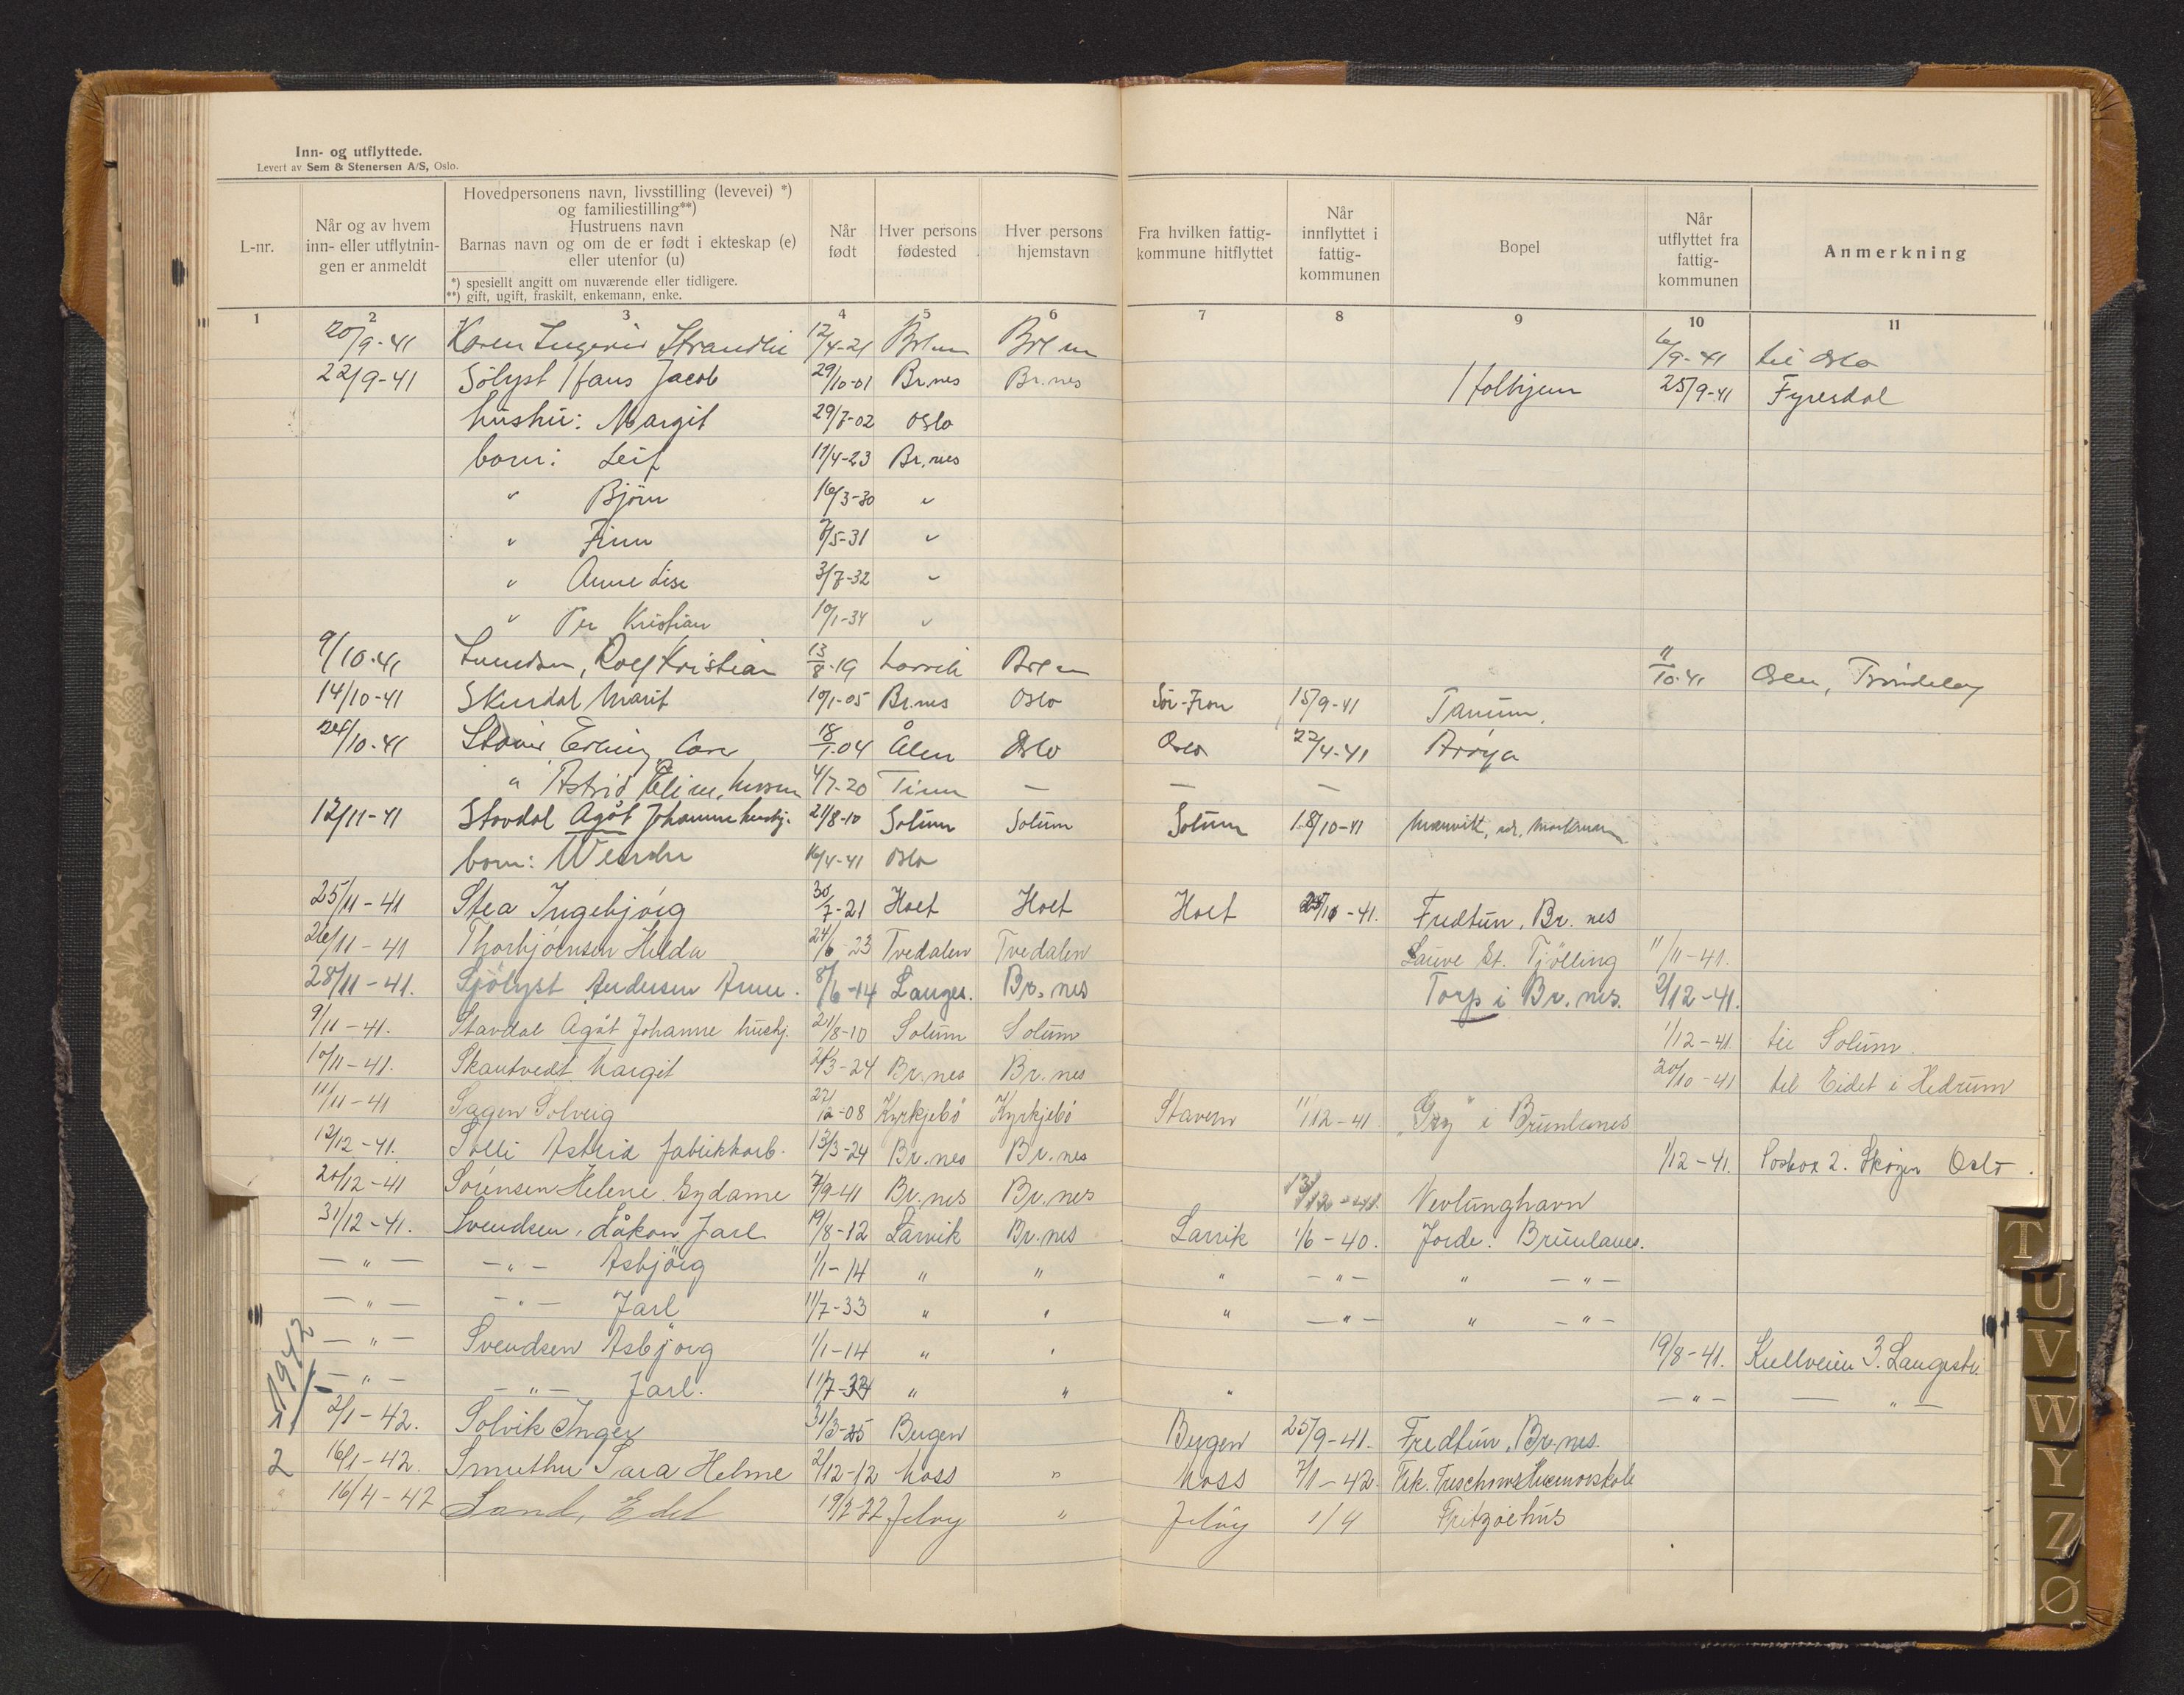 Inn- og utflyttede.
Levert av Sem & Stenersen A/S, Oslo.
L-nr.
Når og av hvem inn- eller utflytningen er anmeldt
Hovedpersonens navn, livsstilling (levevei) *)
og familiestilling**)
Hustruens navn
Barnas navn og om de er født i ekteskap (e)
eller utenfor (u)
*) spesiellt angitt om nuværende eller tidligere.
**) gift, ugift, fraskilt, enkemann, enke.
Når født
Hver persons fødested
Hver persons hjemstavn
Fra hvilken fattigkommune hitflyttet
Når innflyttet i fattigkommunen
Bopel
Når utflyttet fra fattigkommunen
Anmerkning
1 2 3 4 5 6 7 8 9 10 11
20/9-41 Karen Ingerid Strandli 12/4-21 6/9-41 til Oslo
22/9-41 Sölyst Hans Jacob 29/10-01 Br.nes Br.nes Holhjem 25/9-41 Fyresdal
hustru: Margit 29/7-02 Oslo
barn: Leif 17/4-23 Br.nes
" Björn 16/3-30 "
" Finn /5-31 "
" Anne Lise 3/7-32 "
" Per Kristian 10/1-34 "
9/10-41 Rolf Kristian 13/8-19 Larvik 11/10-41 Tröndelag
14/10-41 Skurdal Marit 10/1-05 Br.nes Oslo Sör-Fron 15/9-41 Tanum.
24/10-41 Erling 18/1-04 Ålen Oslo Oslo 22/4-41 Aröya
" Astrid Eline, 4/7-20 Tinn — — —
12/11-41 Stavdal Agåt Johanne hushj. 21/8-10 Solum Solum Solum 18/10-41
barn: Wenche 16/4-41 Oslo
25/11-41 Stea Ingebjörg 30/7-21 Holt Holt Holt -41. Fredtun, Br.nes
26/11-41 Thorbjörnsen Hilda 24/6-23 Tvedalen Tvedalen Lauve St. Tjölling 11/11-41.
28/11-41. Sjölyst Andersen Anne. 8/6-14 Langes. Br.nes Torp i Br.nes. 2/12-41.
9/11-41. Stavdal Agåt Johanne hushj. 21/8-10 Solum Solum 1/12-41 til Solum.
10/11-41. Skautvedt Margit /3-24 Br.nes Br.nes 20/10-41 til Eidet i Hedrum
11/11-41 Sagen Solveig 22/12-08 Kyrkjebö Kyrkjebö Stavern 11/12-41 i Brunlanes
12/12-41. Solli Astrid fabrikkarb. 13/3-24 Br.nes Br.nes 1/12-41. Postbox 2. Skøyen Oslo.
20/12-41 Sörensen Helene Gydame 7/9-41 Br.nes Br.nes Nevlunghavn
31/12-41. Svendsen, Håkon Jarl 19/8-12 Larvik Br.nes Larvik 1/6-40. Jorde. Brunlanes.
— " — — " — Asbjörg 1/1-14 " " " — " — " — " —
— " — — " — Jarl 11/7-33 " " " — " — " — " —
— " — Svendsen Asbjörg 1/1-14 " " 19/8-41. Kullveien 3. Langestr.
— " — — " — Jarl. 11/7-33 " " " — " — — " —
1942
1 2/1-42. Solvik Inger 31/3-25 Bergen Bergen 25/9-41. Fredtun, Br.nes.
2 16/1-42. Sara Helene 2/12-12 Moss " Moss 7/1-42. Frk. Treschows Husmorskole
" 16/4-42 Sand, Edel 19/2-22 Jelöy " Jelöy 1/4 Fritzöehus
T
U
V
W
Y
Z
Ø